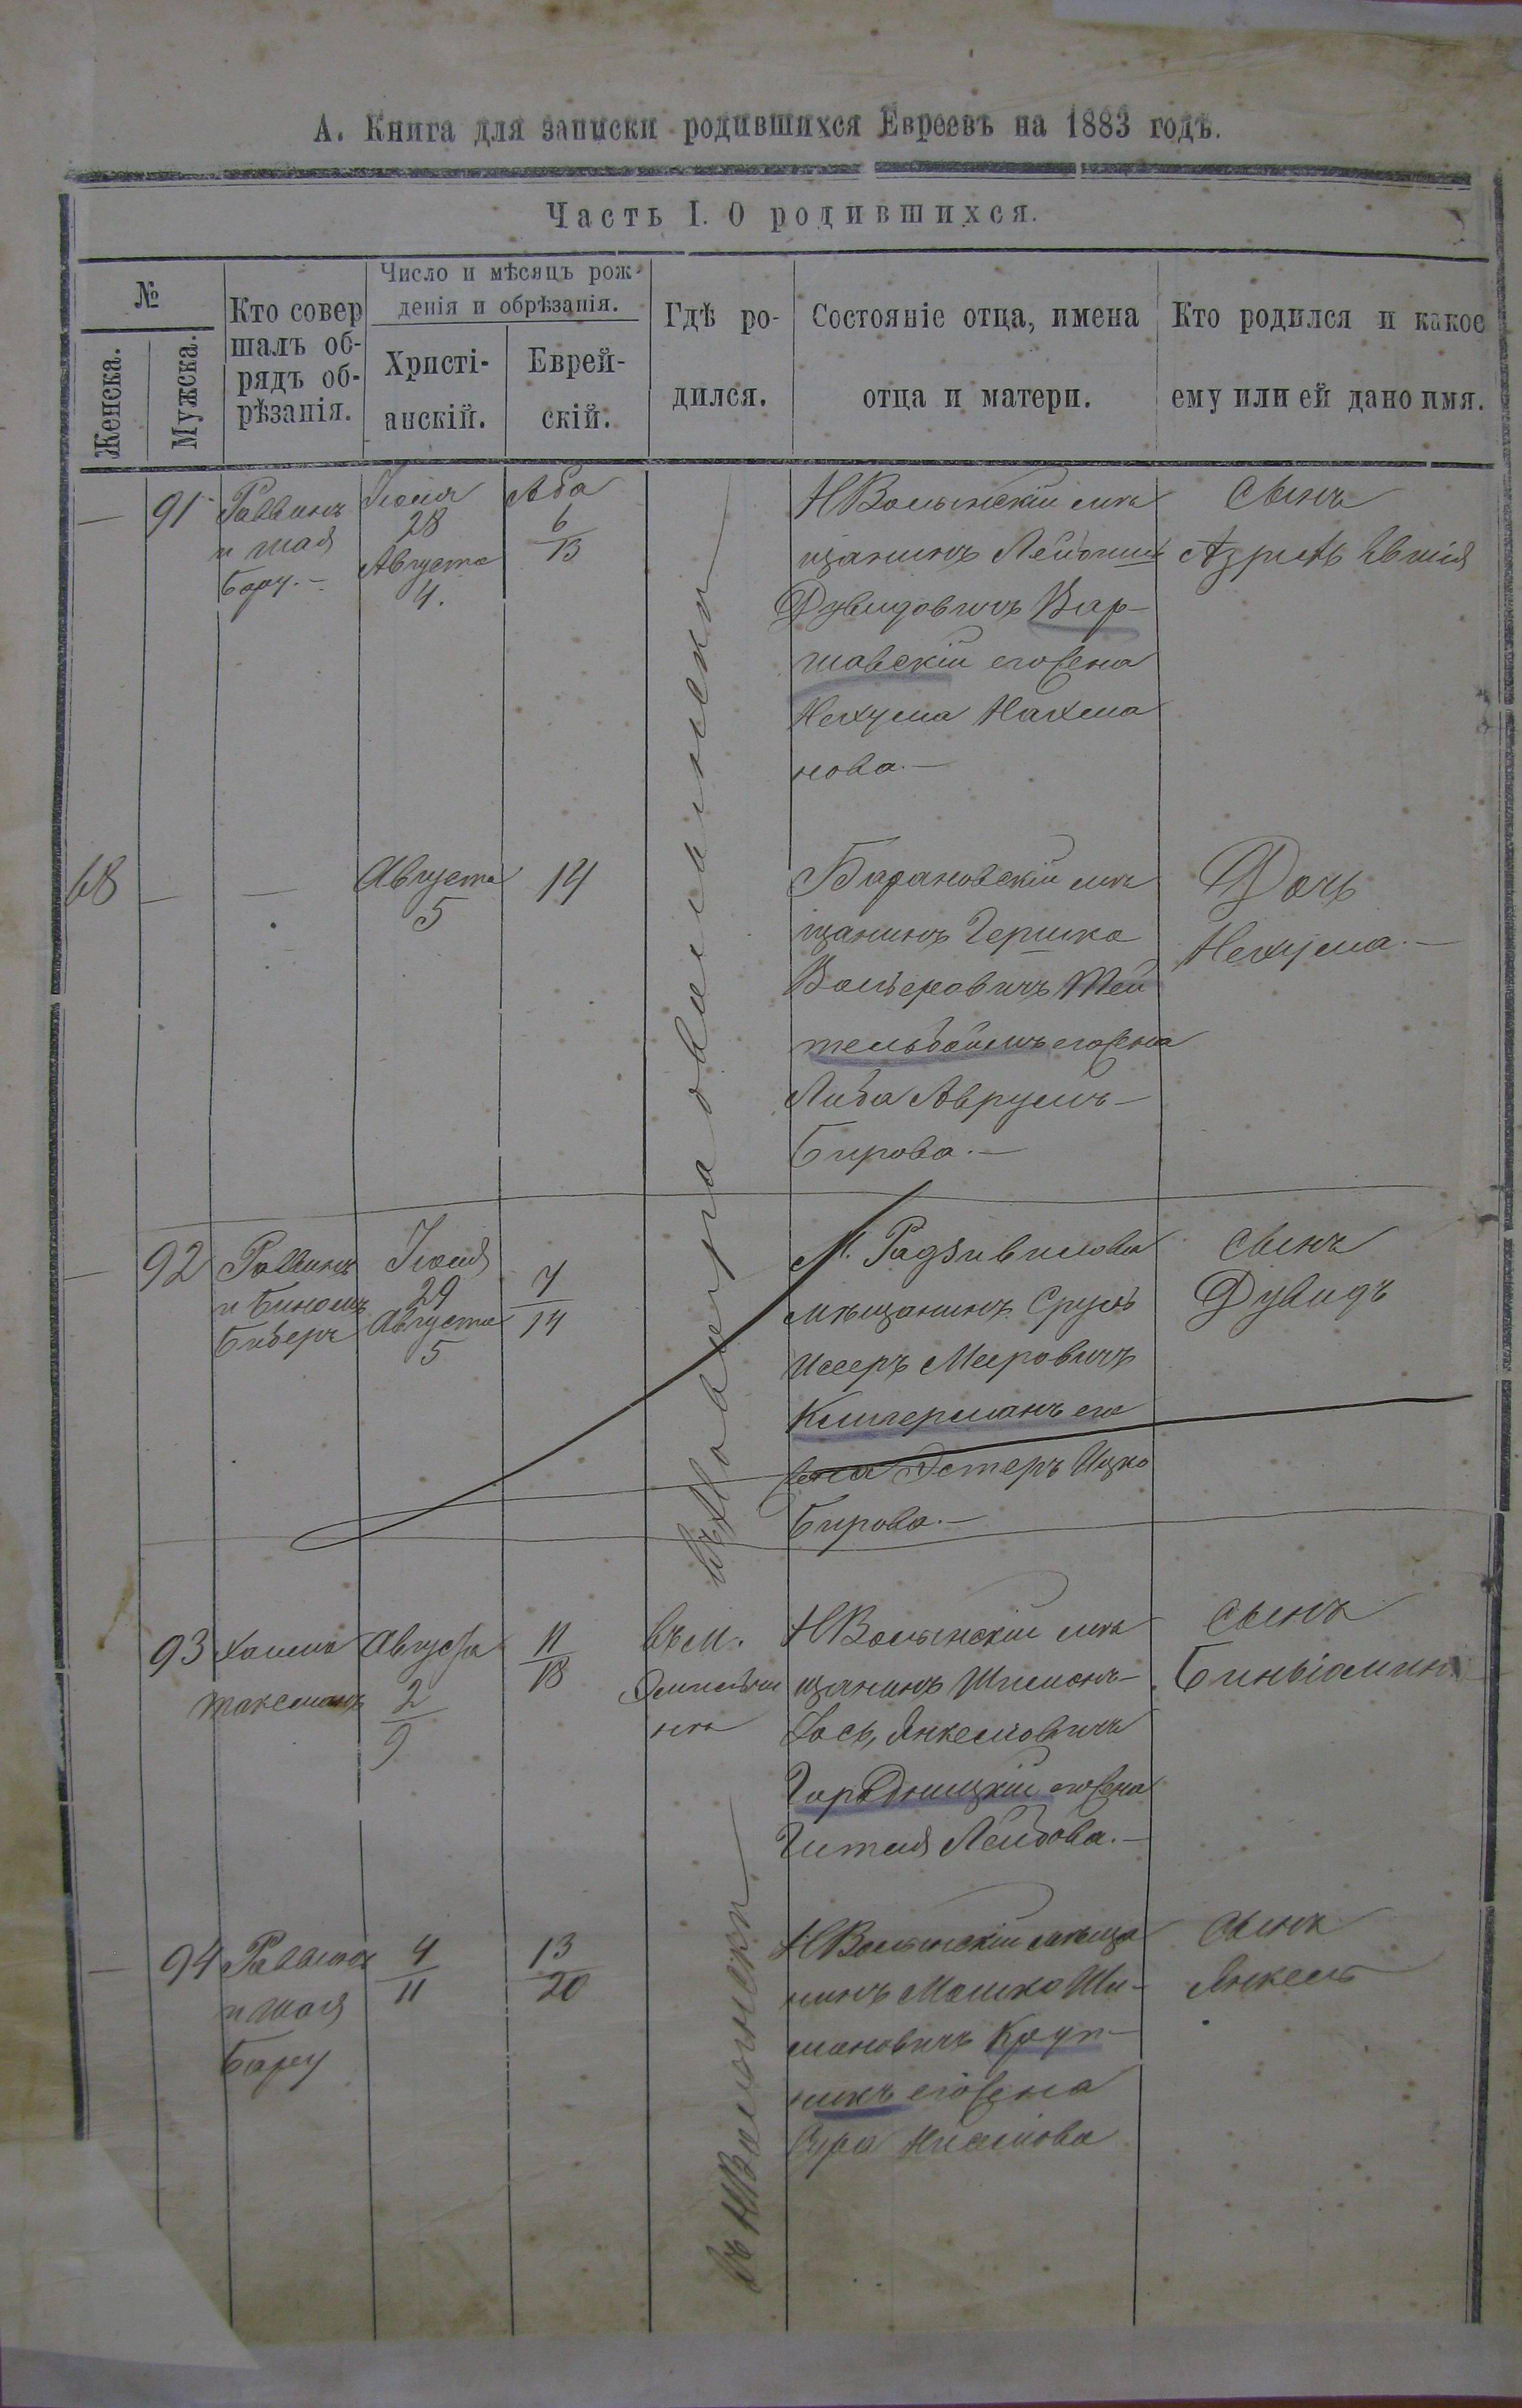 А. Книга для записки родившихся Евреевъ на 1883 годъ.
Часть I. О родившихся.
№
Женска.
Мужска.
Кто совер
шалъ об-
рядъ об-
рѣзанія.
Число и мѣсяцъ рож-
денія и обрѣзанія.
Христі-
анскій.
Еврей-
скій.
Гдѣ ро-
дился.
Состояніе отца, имена
отца и матери.
Кто родился и какое
ему или ей дано имя.
— 91
Раввинъ
и Шая
Бару.—
Іюля
28
Августа
4.
Аба
6
13
НВолынскій мѣ
щанинъ Лейбиш
Дувидовичъ Вар-
шавскій его жена
Нехума Нахма
нова.—
Сынъ
Азриль
68 — —
Августа
5
14
Барановскій мѣ
щанинъ Гершко
Вольковичъ Тей
тельбаумъ его жена
Либа Аврумъ-
Берова.—
Дочь
Нехума.—
— 92
Раввинъ
и Биномъ
Биберъ
Іюля
29
Августа
5
7
14
М. Радзивилова
мѣщанинъ Сруль
Исеръ Меировичъ
Клигерманъ его
жена Эстеръ Ицко
Берова.—
Сынъ
Дувидъ
93
Хаима
Таксманъ
Августа
2
9
11
18
въ м.
НВолынскій мѣ
щанинъ Шимонъ-
Іось, Янкелевичъ
Городницкій его жена
Гитля Лейбова.—
Сынъ
Биньіаминъ
— 94
Раввинъ
и Шая
Бару
4
11
13
20
въ НВолынскѣ
НВолынскій мѣща
нинъ Мошко Ши-
мановичъ Круп-
никъ его жена
Сура
Сынъ
Янкель